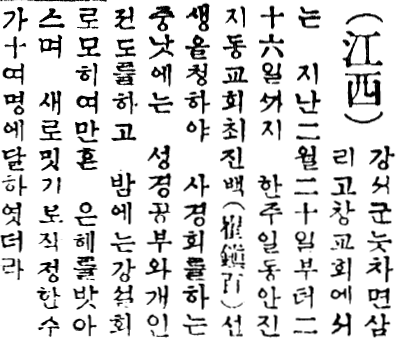 (江西)
강서군눗차면삼
리고창교회에서
는 지난二월二十일부터二
十六일ᄭᅡ지 한주일동안진
지동교회최진백(崔鎭百)선
생을청하야 사경회를하는
중낫에는 성경공부와개인
전도를하고 밤에는강설회
로모히여만흔 은혜를밧아
스며 새로밋기로작정한수
가十여명에달하엿더라